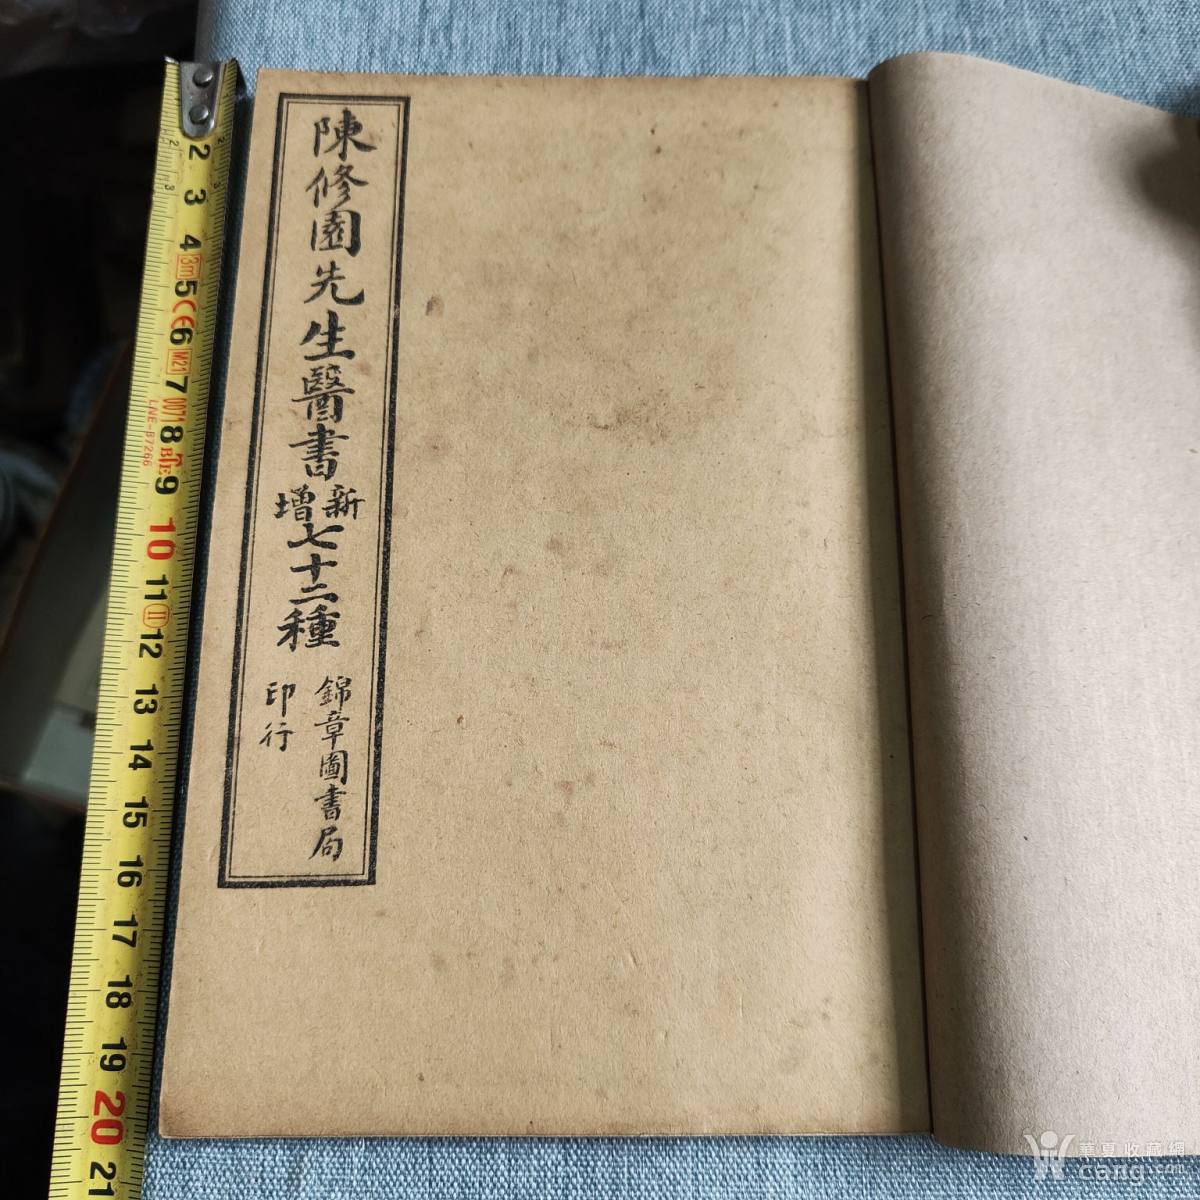 陳修園先生醫書新增七十二種
錦章圖書局
印行
2
3
4
3m
5
CE
6
M21
7
0071
8
LNE-87266
BTE
9
10
11
II
12
13
14
15
16
17
18
19
20
21
華夏收藏網
cang.com